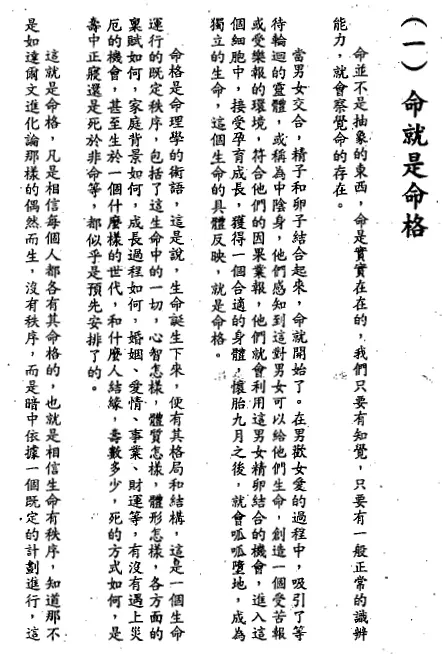 （一）命就是命格
命並不是抽象的東西，命是實實在在的，我們只要有知覺，只要有一般正常的識辨
能力，就會察覺命的存在。
當男女交合，精子和卵子結合起來，命就開始了。在男歡女愛的過程中，吸引了等
待輪迴的靈體，或稱為中陰身，他們感知到這對男女可以給他們生命，創造一個受苦報
或受樂報的環境，符合他們的因果業報，他們就會利用這男女精卵結合的機會，進入這
個細胞中，接受孕育成長，獲得一個合適的身體，懷胎九月之後，就會呱呱墮地，成為
獨立的生命，這個生命的具體反映，就是命格。
命格是命理學的術語，這是說，生命誕生下來，便有其格局和結構，這是一個生命
運行的既定秩序，包括了這生命中的一切，心智怎樣，體質怎樣，體形怎樣，各方面的
稟賦如何，家庭背景如何，成長過程如何，婚姻、愛情、事業、財運等，有沒有遇上災
厄的機會，甚至生於一個什麼樣的世代，和什麼人結緣，壽數多少，死的方式如何，是
壽中正寢還是死於非命等，都似乎是預先安排了的。
這就是命格，凡是相信每個人都各有其命格的，也就是相信生命有秩序，知道那不
是如達爾文進化論那樣的偶然而生，沒有秩序，而是暗中依據一個既定的計劃進行，這